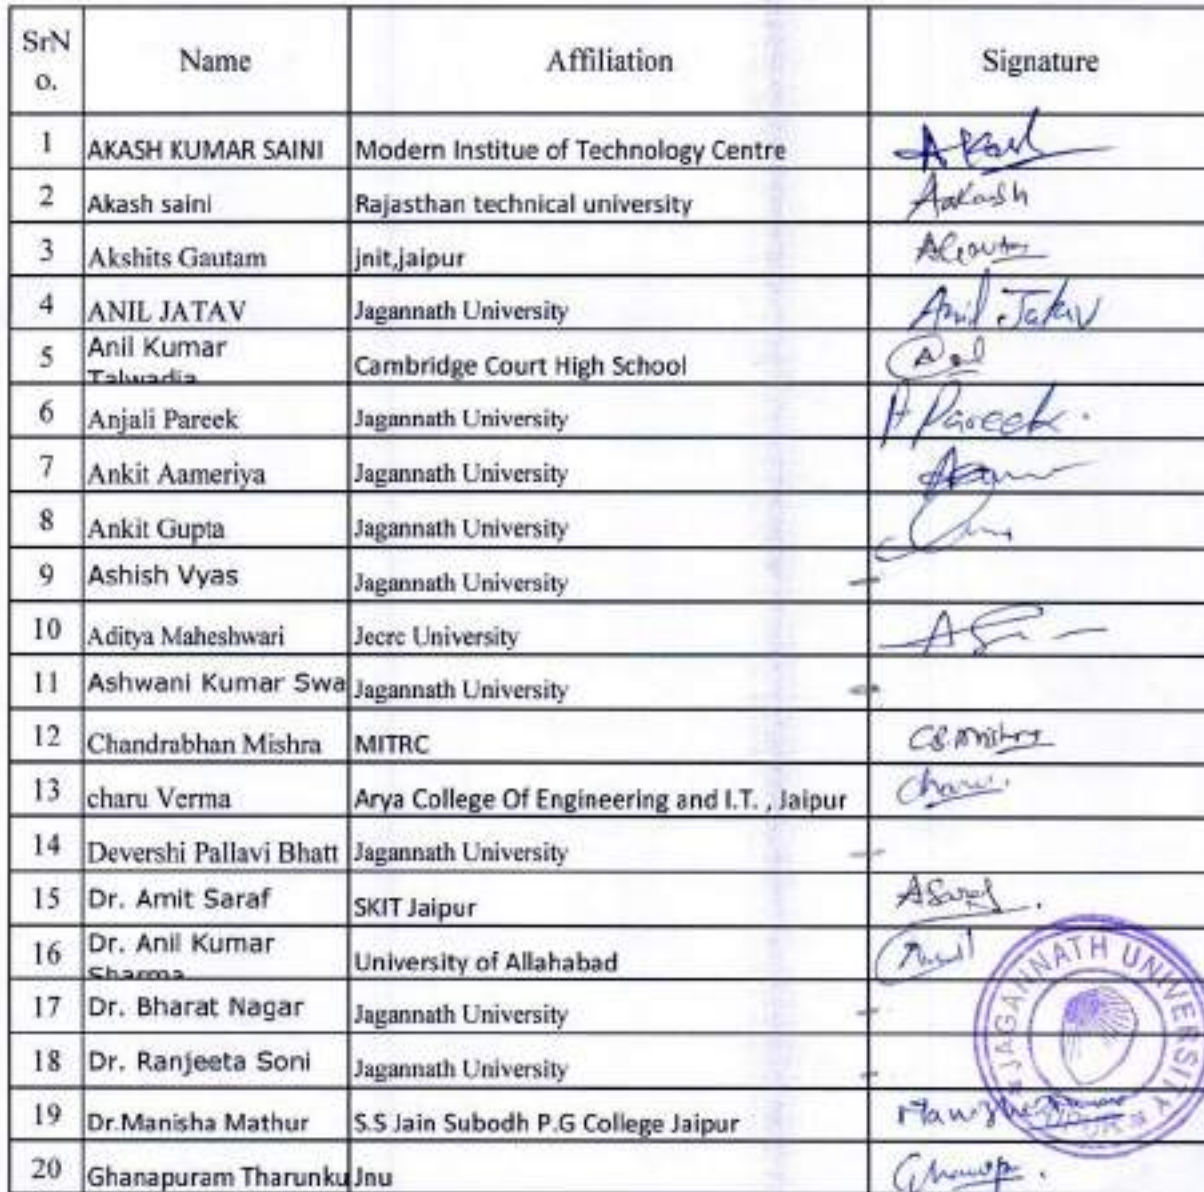 SrN
o. Name Affiliation Signature
1 AKASH KUMAR SAINI Modern Institue of Technology Centre Akash
2 Akash saini Rajasthan technical university Aakash
3 Akshits Gautam jnit,jaipur AGautam
4 ANIL JATAV Jagannath University Anil Jatav
5 Anil Kumar
Talwadia Cambridge Court High School
6 Anjali Pareek Jagannath University A Pareek.
7 Ankit Aameriya Jagannath University
8 Ankit Gupta Jagannath University
9 Ashish Vyas Jagannath University -
10 Aditya Maheshwari Jecrc University
11 Ashwani Kumar Swa Jagannath University -
12 Chandrabhan Mishra MITRC C.B.Mishra
13 charu Verma Arya College Of Engineering and I.T. , Jaipur Charu.
14 Devershi Pallavi Bhatt Jagannath University -
15 Dr. Amit Saraf SKIT Jaipur ASaraf.
16 Dr. Anil Kumar
Sharma University of Allahabad
17 Dr. Bharat Nagar Jagannath University -
18 Dr. Ranjeeta Soni Jagannath University -
19 Dr.Manisha Mathur S.S Jain Subodh P.G College Jaipur
20 Ghanapuram Tharunku Jnu
JAGANNATH UNIVERSITY